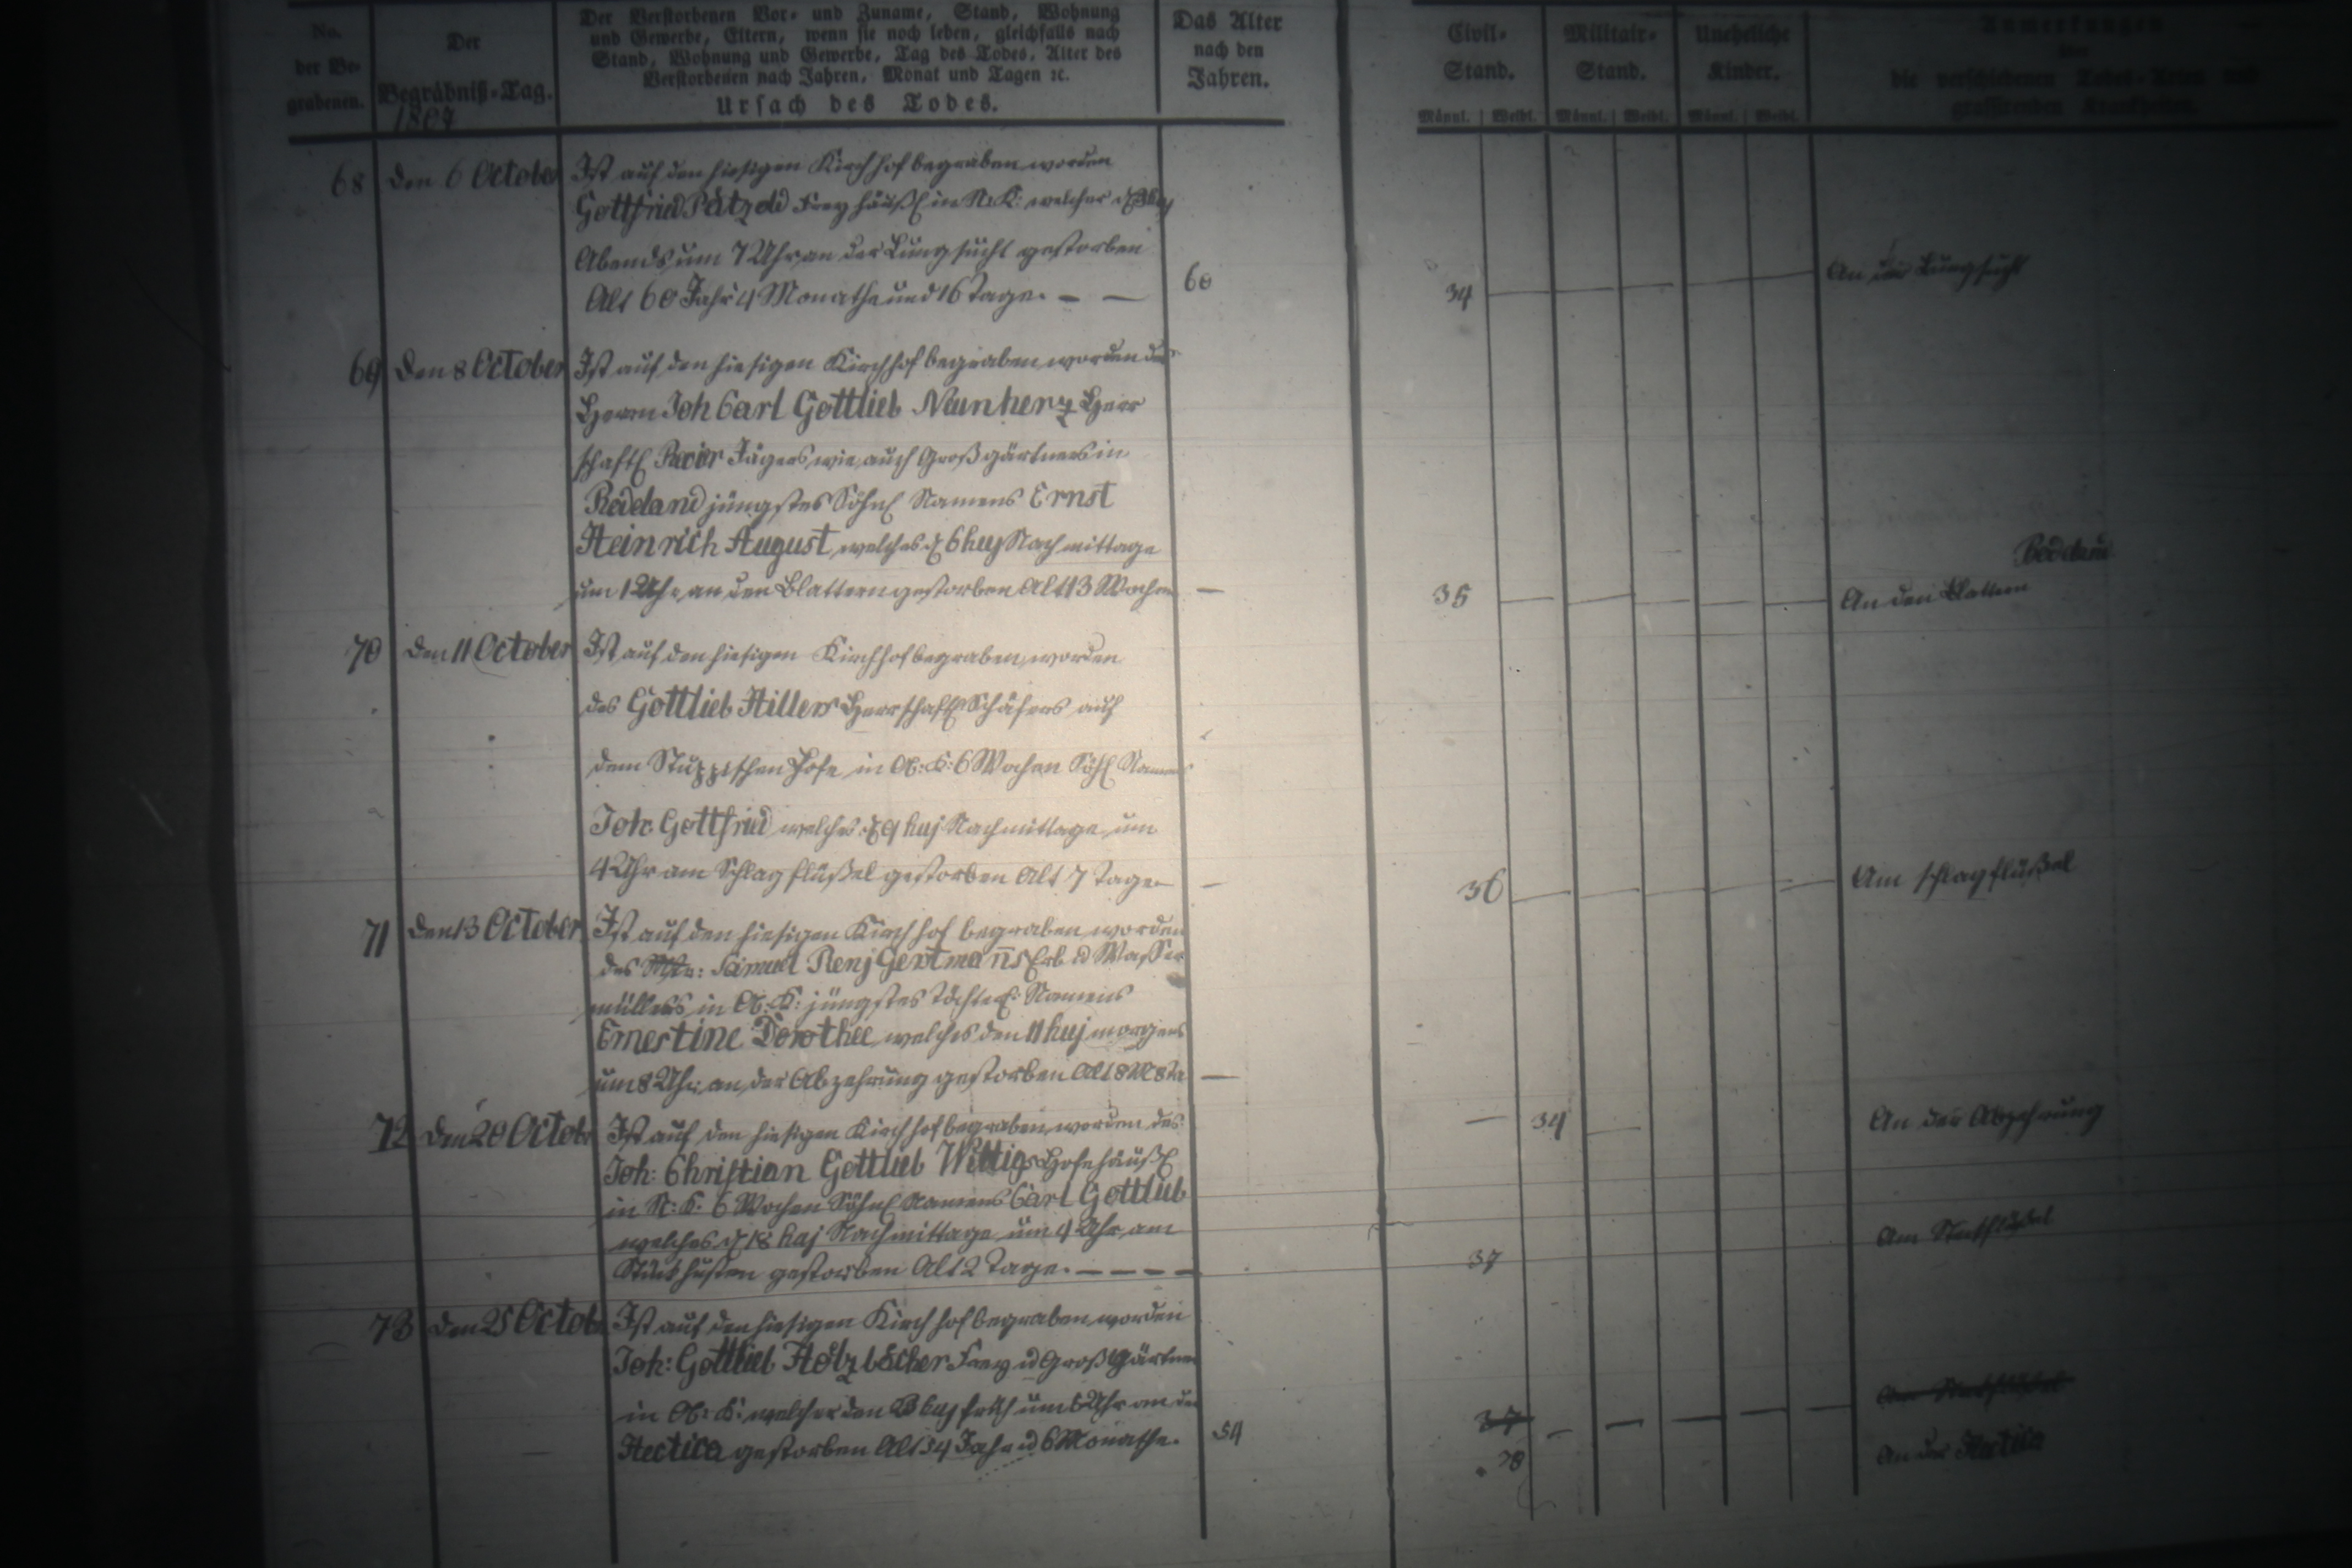 No. der Be- grabenen.
Der Begräbniß-Tag.
1807
Der Verstorbenen Vor- und Zuname, Stand, Wohnung
und Gewerbe, Eltern, wenn sie noch leben, gleichfalls nach
Stand, Wohnung und Gewerbe, Tag des Todes, Alter des
Verstorbenen nach Jahren, Monat und Tagen ꝛc.
Ursach des Todes.
Das Alter
nach den
Jahren.
Civil-
Stand.
Militair-
Stand.
Uneheliche
Kinder.
Anmerkungen
über
die verschiedenen Todes-Arten und
grassirenden Krankheiten.
Männl. Weibl. Männl. Weibl. Männl. Weibl.
68 den 6 October Ist auf den hiesigen Kirchhof begraben worden
Gottfried Pätzold Freyhäußl in N: K: welcher d
Abends um 7 Uhr an der Lungsucht gestorben
Alt 60 Jahr 4 Monathe und 16 Tage. — — 60 34 An der Lungsucht
69 den 8 October Ist auf den hiesigen Kirchhof begraben worden des
Herrn Joh Carl Gottlieb Neunherz Herr
schaftl Revier Jägers wie auch Großgärtners in
jüngstes Söhnl Namens Ernst
Heinrich August, welches d 6 huj Nachmittage
um 1 Uhr an den Blattern gestorben Alt 13 Wochen — 35 An den Blattern
70 den 11 October Ist auf den hiesigen Kirchhof begraben worden
des Gottlieb Hillers Herrschaftl Schäfers auf
dem Hofe in Ob: K: 6 Wochen Söhl Namens
Joh Gottfried welches d 9 huj Nachmittage um
4 Uhr am Schlagflüßel gestorben Alt 7 Tage — — 36 Am schlagflüßel
71 den 13 October Ist auf den hiesigen Kirchhof begraben worden
des Mstr: Samuel Benj Gerstmann̄s Erb u Wasser
müllers in Ob: K: jüngstes Töchterl: Namens
Ernestine Dorothee welches den 11 huj morgens
um 8 Uhr an der Abzehrung gestorben Alt — — 34 An der Abzehrung
72 den 20 Octobr Ist auf den hiesigen Kirchhof begraben worden des
Joh: Christian Gottlieb Wittigs Hofehäußl
in N: K: 6 Wochen Söhnl Namens Carl Gottlieb
welches d 18 huj Nachmittage um 4 Uhr am
gestorben Alt 2 Tage. — — — — 37 Am
73 den 25 Octobr Ist auf den hiesigen Kirchhof begraben worden
Joh: Gottlieb Holzbecher Frey u Großgärtner
in Ob: K: welcher den 23 huj früh um 6 Uhr an der
Hectica gestorben Alt 54 Jahr u 6 Monathe. 54 37
38 An der Hectica